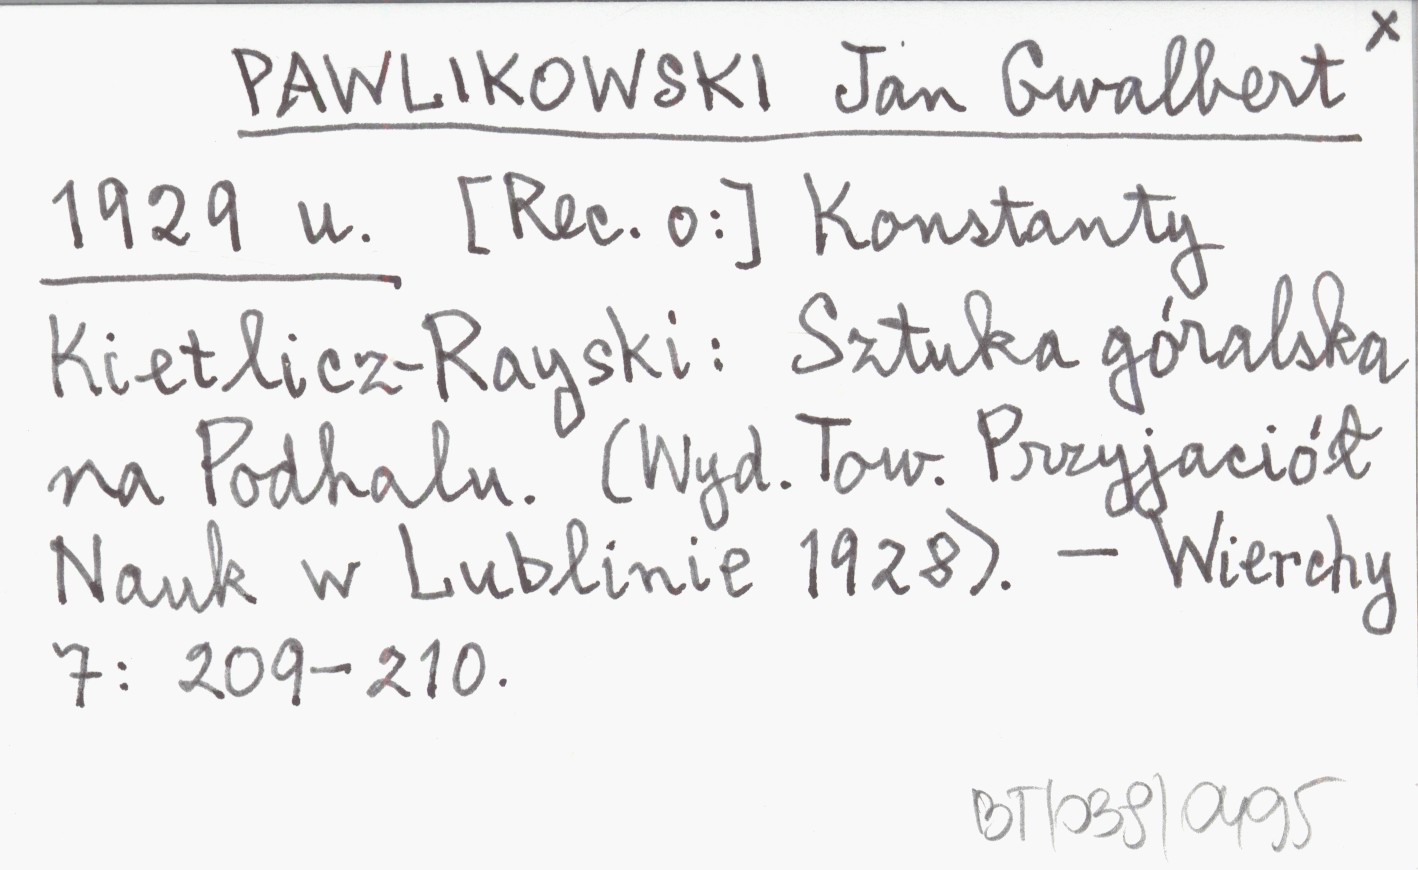 PAWLIKOWSKI Jan Gwalbert x
1929 u. [Rec. o:] Konstanty
Kietlicz-Rayski: Sztuka góralska
na Podhalu. (Wyd. Tow. Przyjaciół
Nauk w Lublinie 1928). — Wierchy
7: 209-210.
BT/038/0495